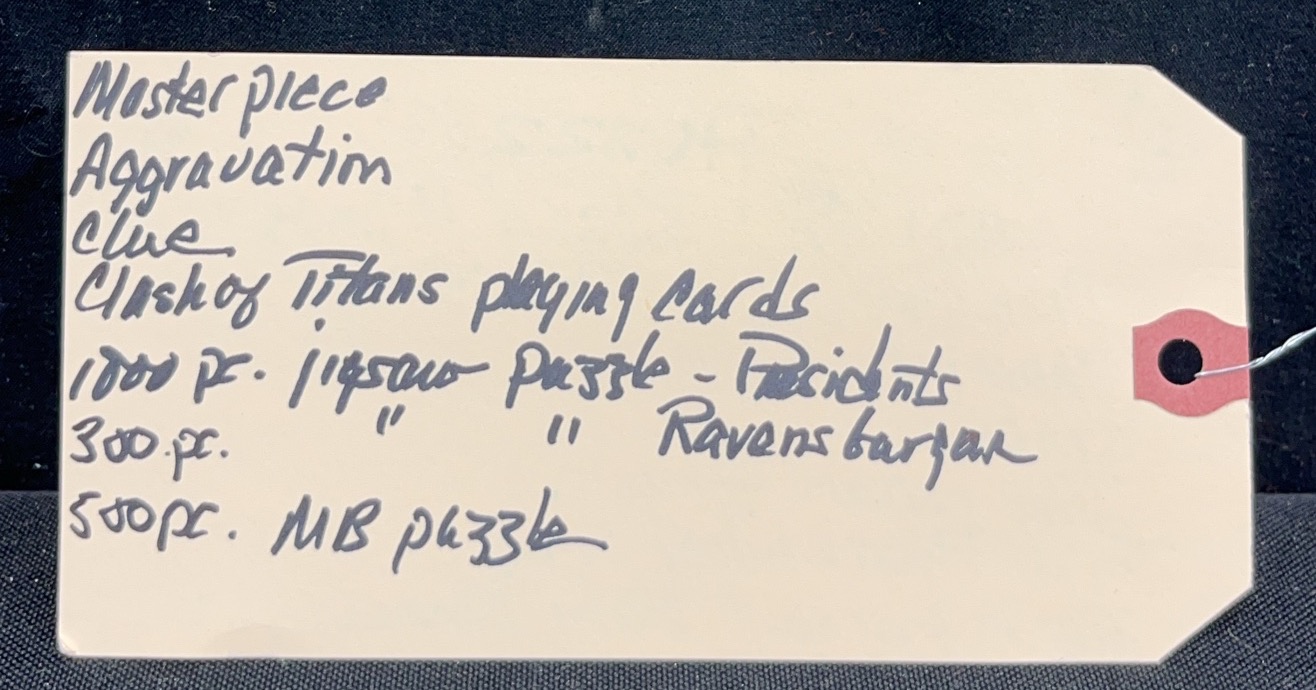 Masterpiece
Aggravation
Clue
Clash of Titans playing cards
1000 pc. jigsaw puzzle - Presidents
300.pc. " " Ravensburgar
500 pc. MB puzzle